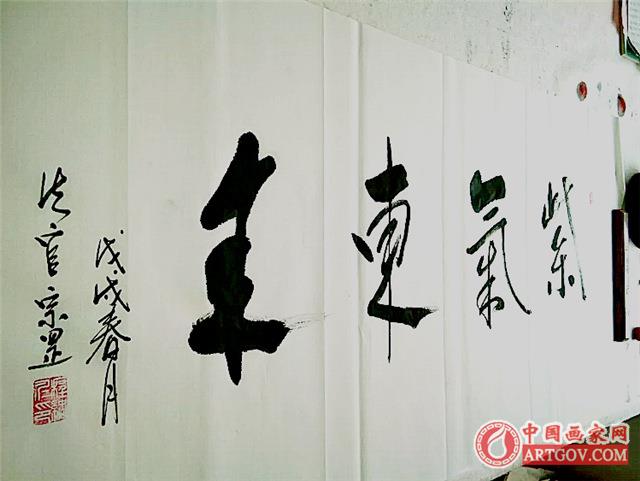 紫氣東来
戊戌春月
官宗
中国画家网
ARTGOV.COM